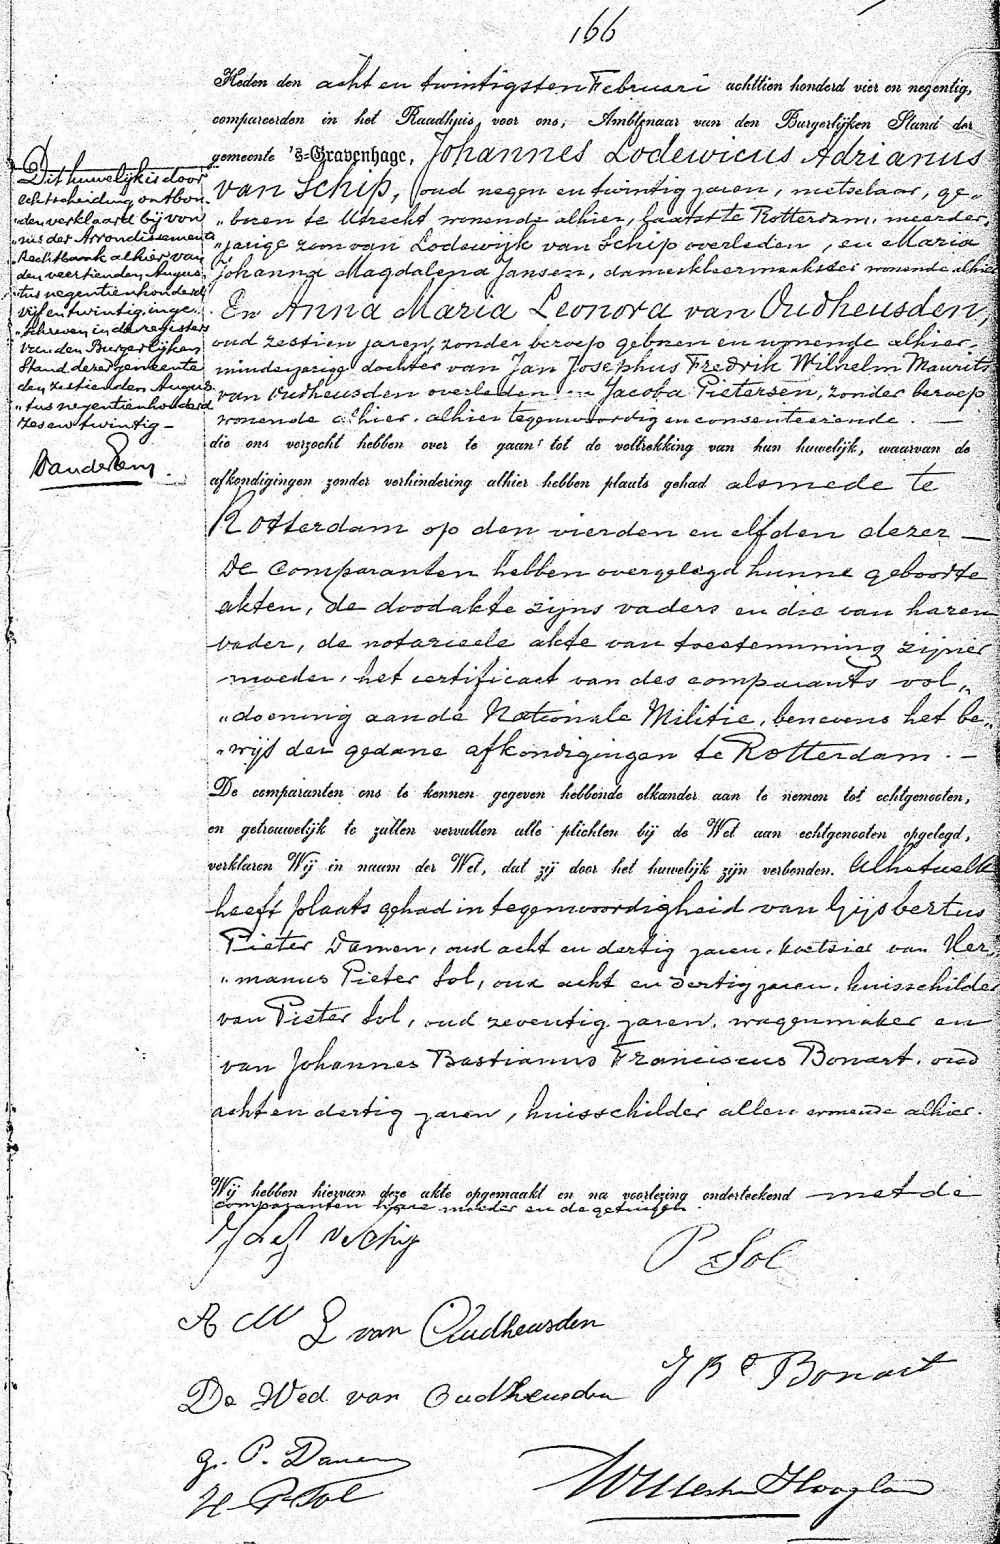 166
Heden den acht en twintigsten Februari achttien honderd vier en negentig,
compareerden in het Raadhuis voor ons, Ambtenaar van den Burgerlijken Stand der
gemeente 's-Gravenhage, Johannes Lodewicus Adrianus
van Schip, oud negen en twintig jaren, metselaar, ge-
"boren te Utrecht wonende alhier, laatst te Rotterdam, meerder,
"jarige zoon van Lodewijk van Schip overleden, en Maria
Johanna Magdalena Jansen, dameskleermaakster wonende alhier
En Anna Maria Leonora van Oudheusden,
oud zestien jaren, zonder beroep geboren en wonende alhier,
minderjarige dochter van Jan Josephus Fredrik Wilhelm Maurits
van Oudheusden overleden en Jacoba Pietersen, zonder beroep
wonende alhier, alhier tegenwoordig en consenteerende. —
die ons verzocht hebben over te gaan tot de voltrekking van hun huwelijk, waarvan de
afkondigingen zonder verhindering alhier hebben plaats gehad alsmede te
Rotterdam op den vierden en elfden dezer —
De comparanten hebben overgelegd hunne geboorte
akten, de doodakte zijns vaders en die van haren
vader, de notarieele akte van toestemming zijner
moeder, het certificaat van des comparants vol"
"doening aan de Nationale Militie, benevens het be"
"wijs der gedane afkondigingen te Rotterdam. —
De comparanten ons te kennen gegeven hebbende elkander aan te nemen tot echtgenooten,
en getrouwelijk te zullen vervullen alle plichten bij de Wet aan echtgenooten opgelegd,
verklaren Wij in naam der Wet, dat zij door het huwelijk zijn verbonden. Al hetwelk
heeft plaats gehad in tegenwoordigheid van Gijsbertus
Pieter Damen, oud acht en dertig jaren, koetsier van Her"
"manus Pieter Sol, oud acht en dertig jaren, huisschilder
van Pieter Sol, oud zeventig jaren, wagenmaker en
van Johannes Bastianus Franciscus Bonart, oud
acht en dertig jaren, huisschilder allen wonende alhier.
Wij hebben hiervan deze akte opgemaakt en na voorlezing onderteekend met de
comparanten hare moeder en de getuigen.
Dit huwelijk is door
echtscheiding ontbon-
"den verklaard bij von
"nis der Arrondissements
Rechtbank alhier van
den veertienden Augus-
"tus negentienhonderd
vijf en twintig, inge-
"schreven in de registers
van den Burgerlijken
Stand dezer gemeente
den zestienden Augus
"tus negentienhonderd
zes en twintig —
P Sol
A M L van Oudheusden
J B F Bonart
De Wed van Oudheusden
G. P. Damen
H P Sol